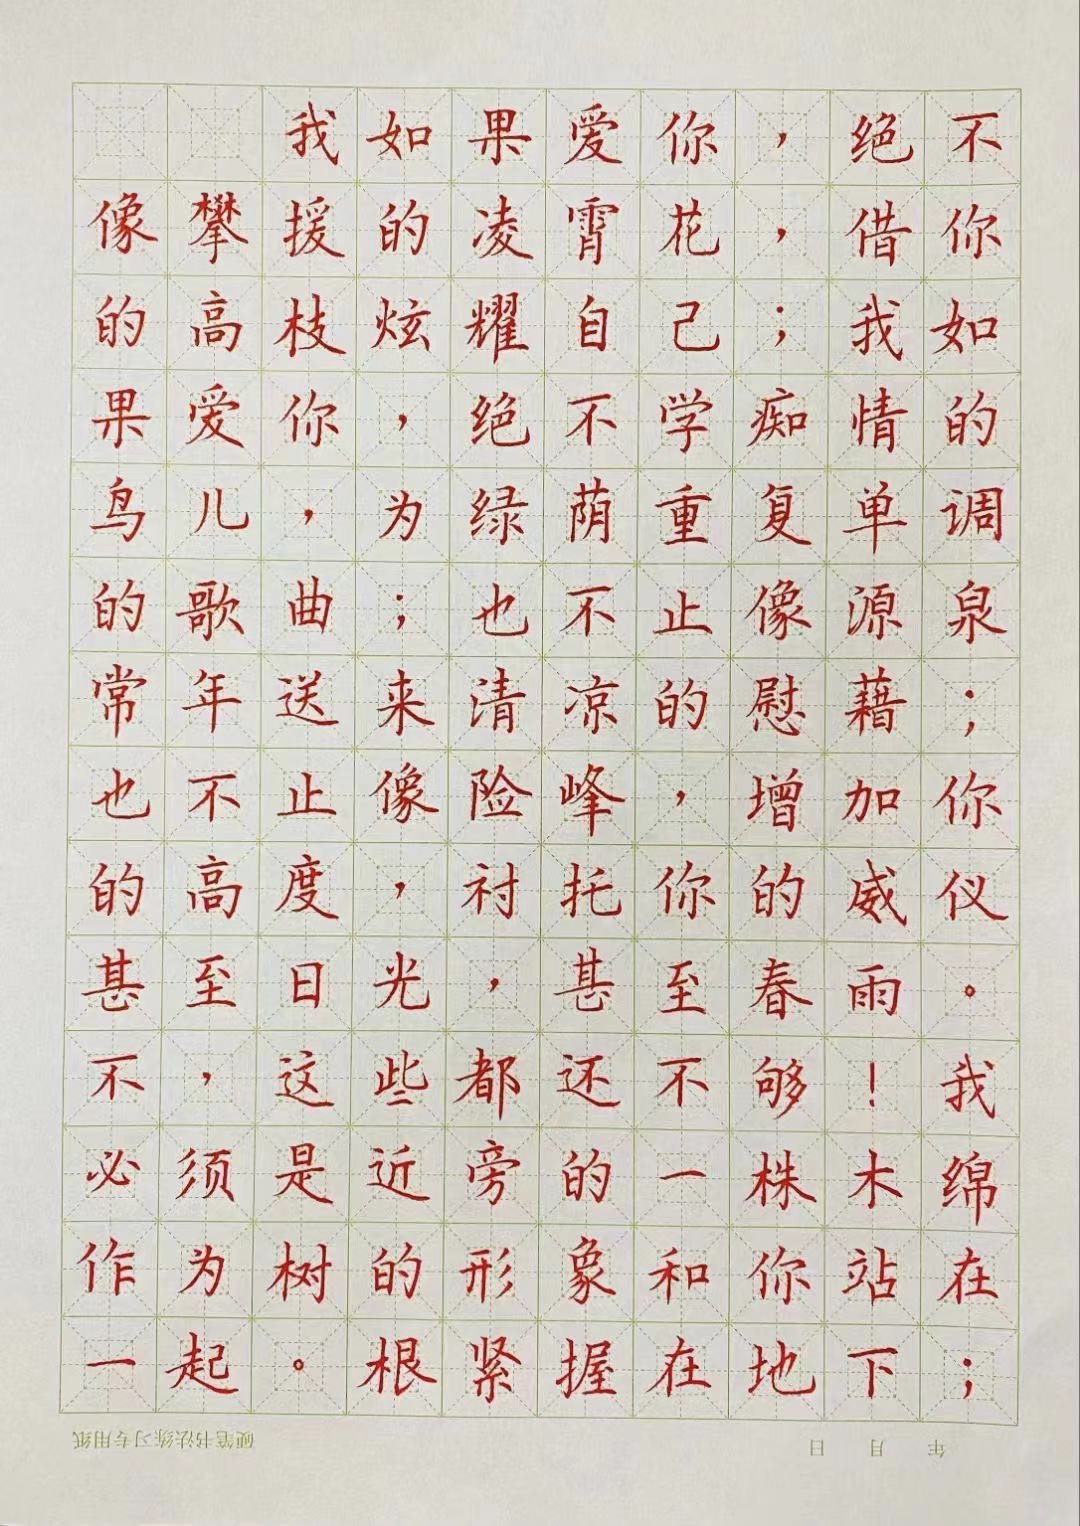 我如果爱你，绝不
像攀援的凌霄花，借你
的高枝炫耀自己；我如
果爱你，绝不学痴情的
鸟儿，为绿荫重复单调
的歌曲；也不止像源泉
常年送来清凉的慰藉；
也不止像险峰，增加你
的高度，衬托你的威仪
甚至日光，甚至春雨。
不，这些都还不够！我
必须是近旁的一株木绵
作为树的形象和你站在
一起。根紧握在地下；
硬笔书法练习专用纸 年 月 日